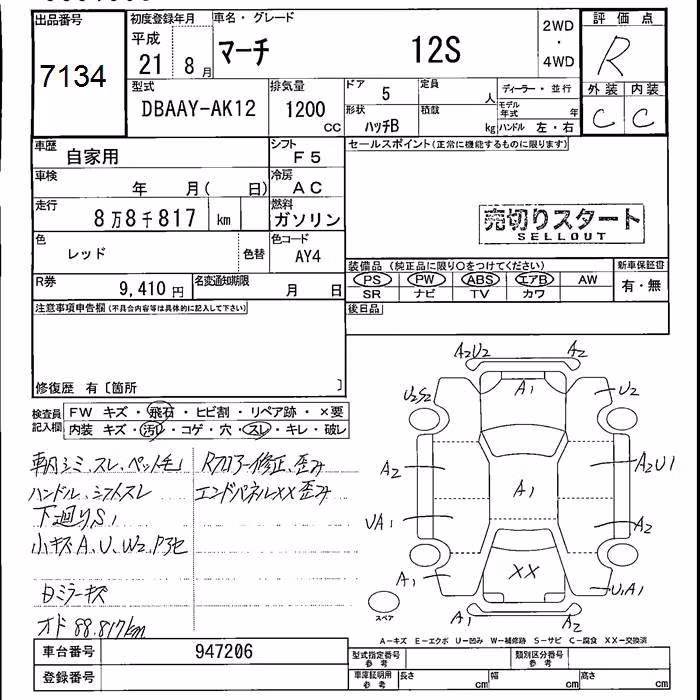 出品番号
7134
初度登録年月
平成
21 8 月
車名・グレード
マーチ 12S
2WD
・
4WD
評価点
R
外装 内装
C C
型式
DBAAY-AK12
排気量
1200
cc
ドア 5
形状
ハッチB
定員
人
積載
kg
ディーラー・並行
モデル年式 年
ハンドル 左・右
車歴
自家用
シフト
F5
車検
年 月( 日)
冷房
AC
走行
8万8千817 km
燃料
ガソリン
色
レッド
色替
色コード
AY4
R券
9,410 円
名変通知期限
月 日
セールスポイント(正常に機能するものに限ります)
売切りスタート
SELLOUT
装備品 (純正品に限り○をつけてください)
新車保証書
PS PW ABS エアB AW
SR ナビ TV カワ
有・無
後日品
注意事項申告欄(不具合内容等は具体的に記入して下さい)
修復歴 有〔箇所 〕
検査員
記入欄
FW キズ・飛石・ヒビ割・リペア跡・×要
内装 キズ・汚レ・コゲ・穴・スレ・キレ・破レ
車内シミ、スレ、ペット毛
ハンドル、シフトスレ
下廻りS1
小キズA、U、W2、P
ミラーキズ
オド 88.817km
Rフロアー修正、歪み
エンドパネルXX歪み
A2U2 A2
U2S2 A1 U2
A2 A1 A2U1
UA1 A2
A1 XX U1A1
A1 A2
スペア
A-キズ E-エクボ U-凹み W-補修跡 S-サビ C-腐食 XX-交換済
車台番号 947206
登録番号
型式指定番号
参考
類別区分番号
参考
車庫証明用
参考
長さ cm 幅 cm 高さ cm